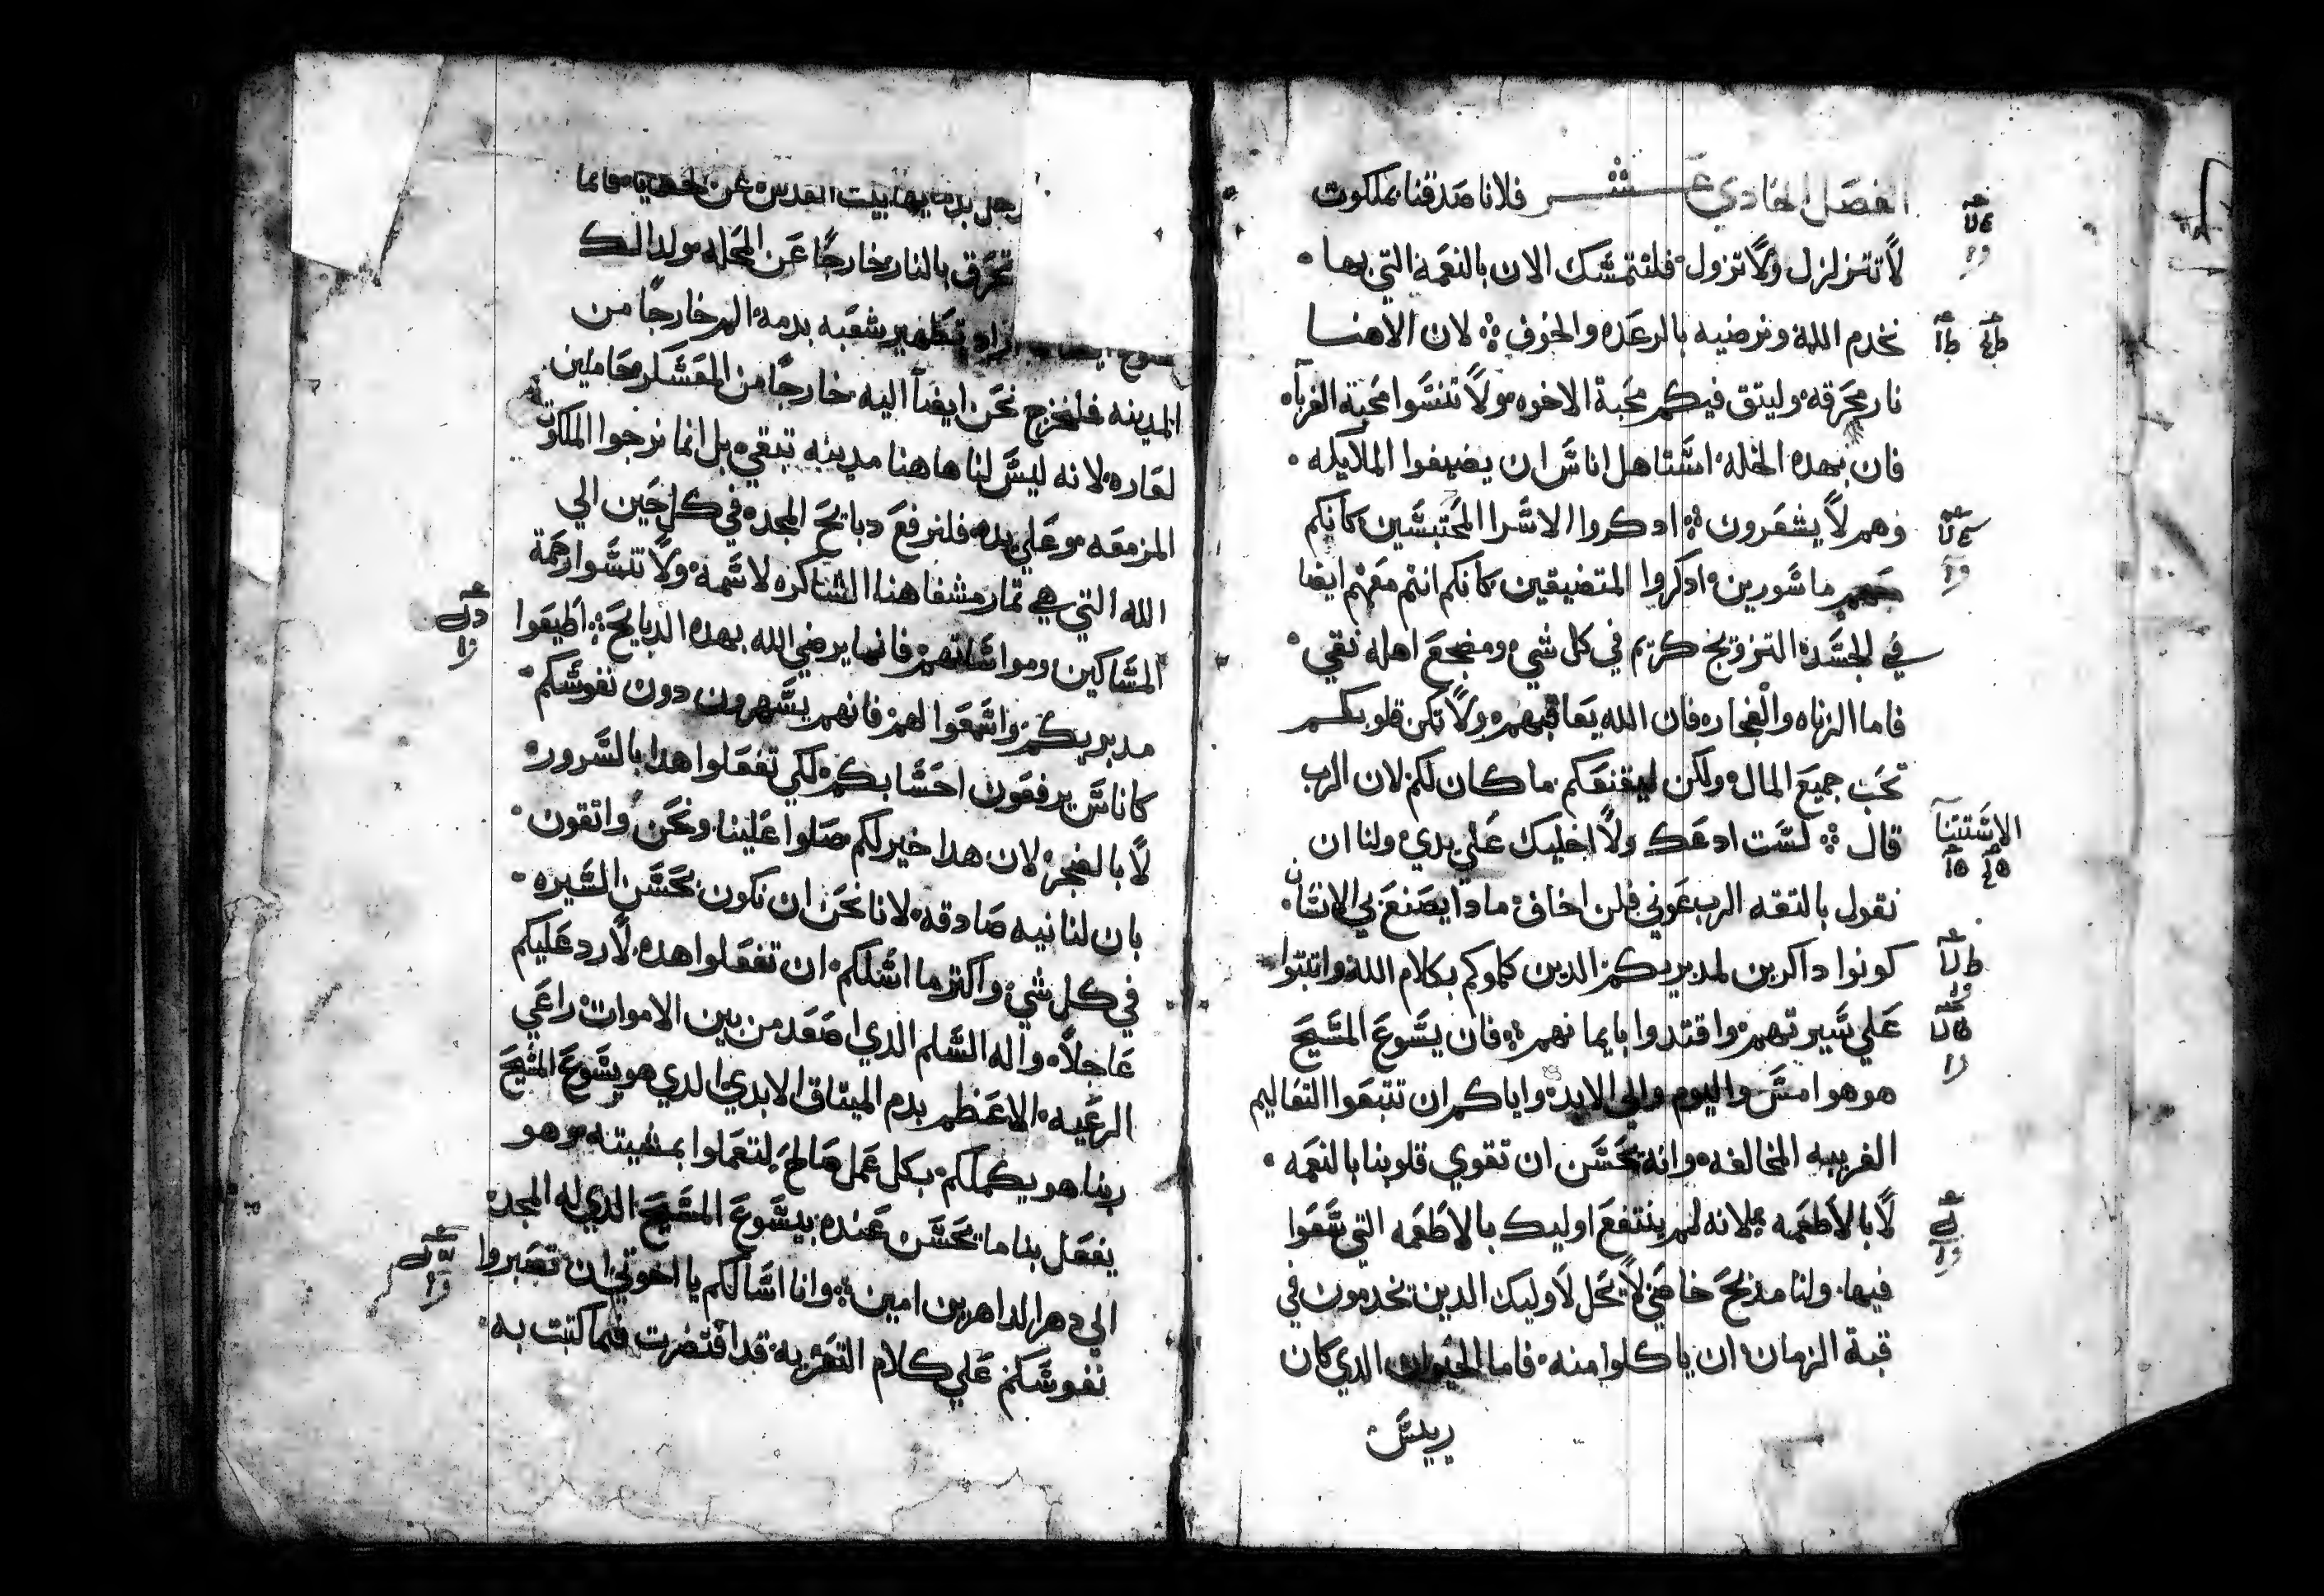 الفصل الحادي عشر فلانا صدقنا بملكوت
لا تتزلزل ولا تزول فلنتمسك الان بالنعمة التي بها
نخدم الله ونرضيه بالرعده والخوف لان الاهنا
نار محرقه وليتق فيكم محبة الاخوه ولا تنسوا محبة الغربآء
فان بهده الخله استاهل اناس ان يضيفوا الملايكه
وهم لا يشعرون ادكروا الاسرا المحتبسين كانكم
معهم ماسورين ادكروا المتضيقين كانكم انتم معهم ايضا
في الجسد التزويج كريم في كل شي ومضجع اهله نقي
فاما الزناه والفجاره فان الله يعاقبهم ولا تكن قلوبكم
تحب جميع المال ولكن ليقنعكم ما كان لكم لان الرب
الاستتنا
قال لست ادعك ولا اخليك علي يدي ولنا ان
نقول بالتقه الرب عوني فلن اخاف مادا يصنع بي الانسان
كونوا داكرين لمدبريكم الدين كلموكم بكلام الله واتبتوا
علي سيرتهم واقتدوا بايمانهم فان يسوع المسيح
هو هو امس واليوم والي الابد واياكم ان تتبعوا التعاليم
الغريبه المخالفه وانه يحسن ان تقوي قلوبنا بالنعمه
لا بالاطعمه لانه لم ينتفع اوليك بالاطعمه التي سعوا
فيها ولنا مذبح خاصي لا يحل لاوليك الدين يخدمون في
قبة الزمان ان ياكلوا منه فاما الحيوان الدي كان
ريس
بيت القدس عن فانما
تحرق بالنار خارجا عن المحله ولدالك
تطهير شعبه بدمه الم خارجا من
المدينه فلنخرج نحن ايضآ اليه خارجا من المعسكر حاملين
لعاره لانه ليس لنا هاهنا مدينه تبقي بل انما نرجوا الملكوت
المزمعه وعلي يده فلنرفع دبايح المجد في كل حين الي
الله التي هي تمار شفاهنا الشاكره لاسمه ولا تنسوا رحمة
المساكين ومواساتهم فانما يرضي الله بهده الدبايح اطيعوا
مدبريكم واسمعوا لهم فانهم يسهرون دون نفوسكم
كاناس يرفعون احسابكم لكي تفعلوا هدا بالسرور
لا بالضجر لان هدا خير لكم صلوا علينا ونحن واتقون
بان لنا نيه صادقه لانا نحن ان نكون بحسن السيره
في كل شي واكتر ما اسلكم ان تفعلوا هده لارد عليكم
عاجلا واله السلم الدي اصعد من بين الاموات راعي
الرعيه الاعظم بدم الميتاق الابدي الدي هو يسوع المسيح
ربنا هو يكملكم بكل عمل صالح لتعملوا بمشيته وهو
يفعل بنا ما يحسن عنده بيسوع المسيح الدي له المجد
الي دهر الداهرين امين وانا اسالكم يا اخوتي ان تصبروا
نفوسكم علي كلام التعزيه قد اقتصرت فيما كتبت به